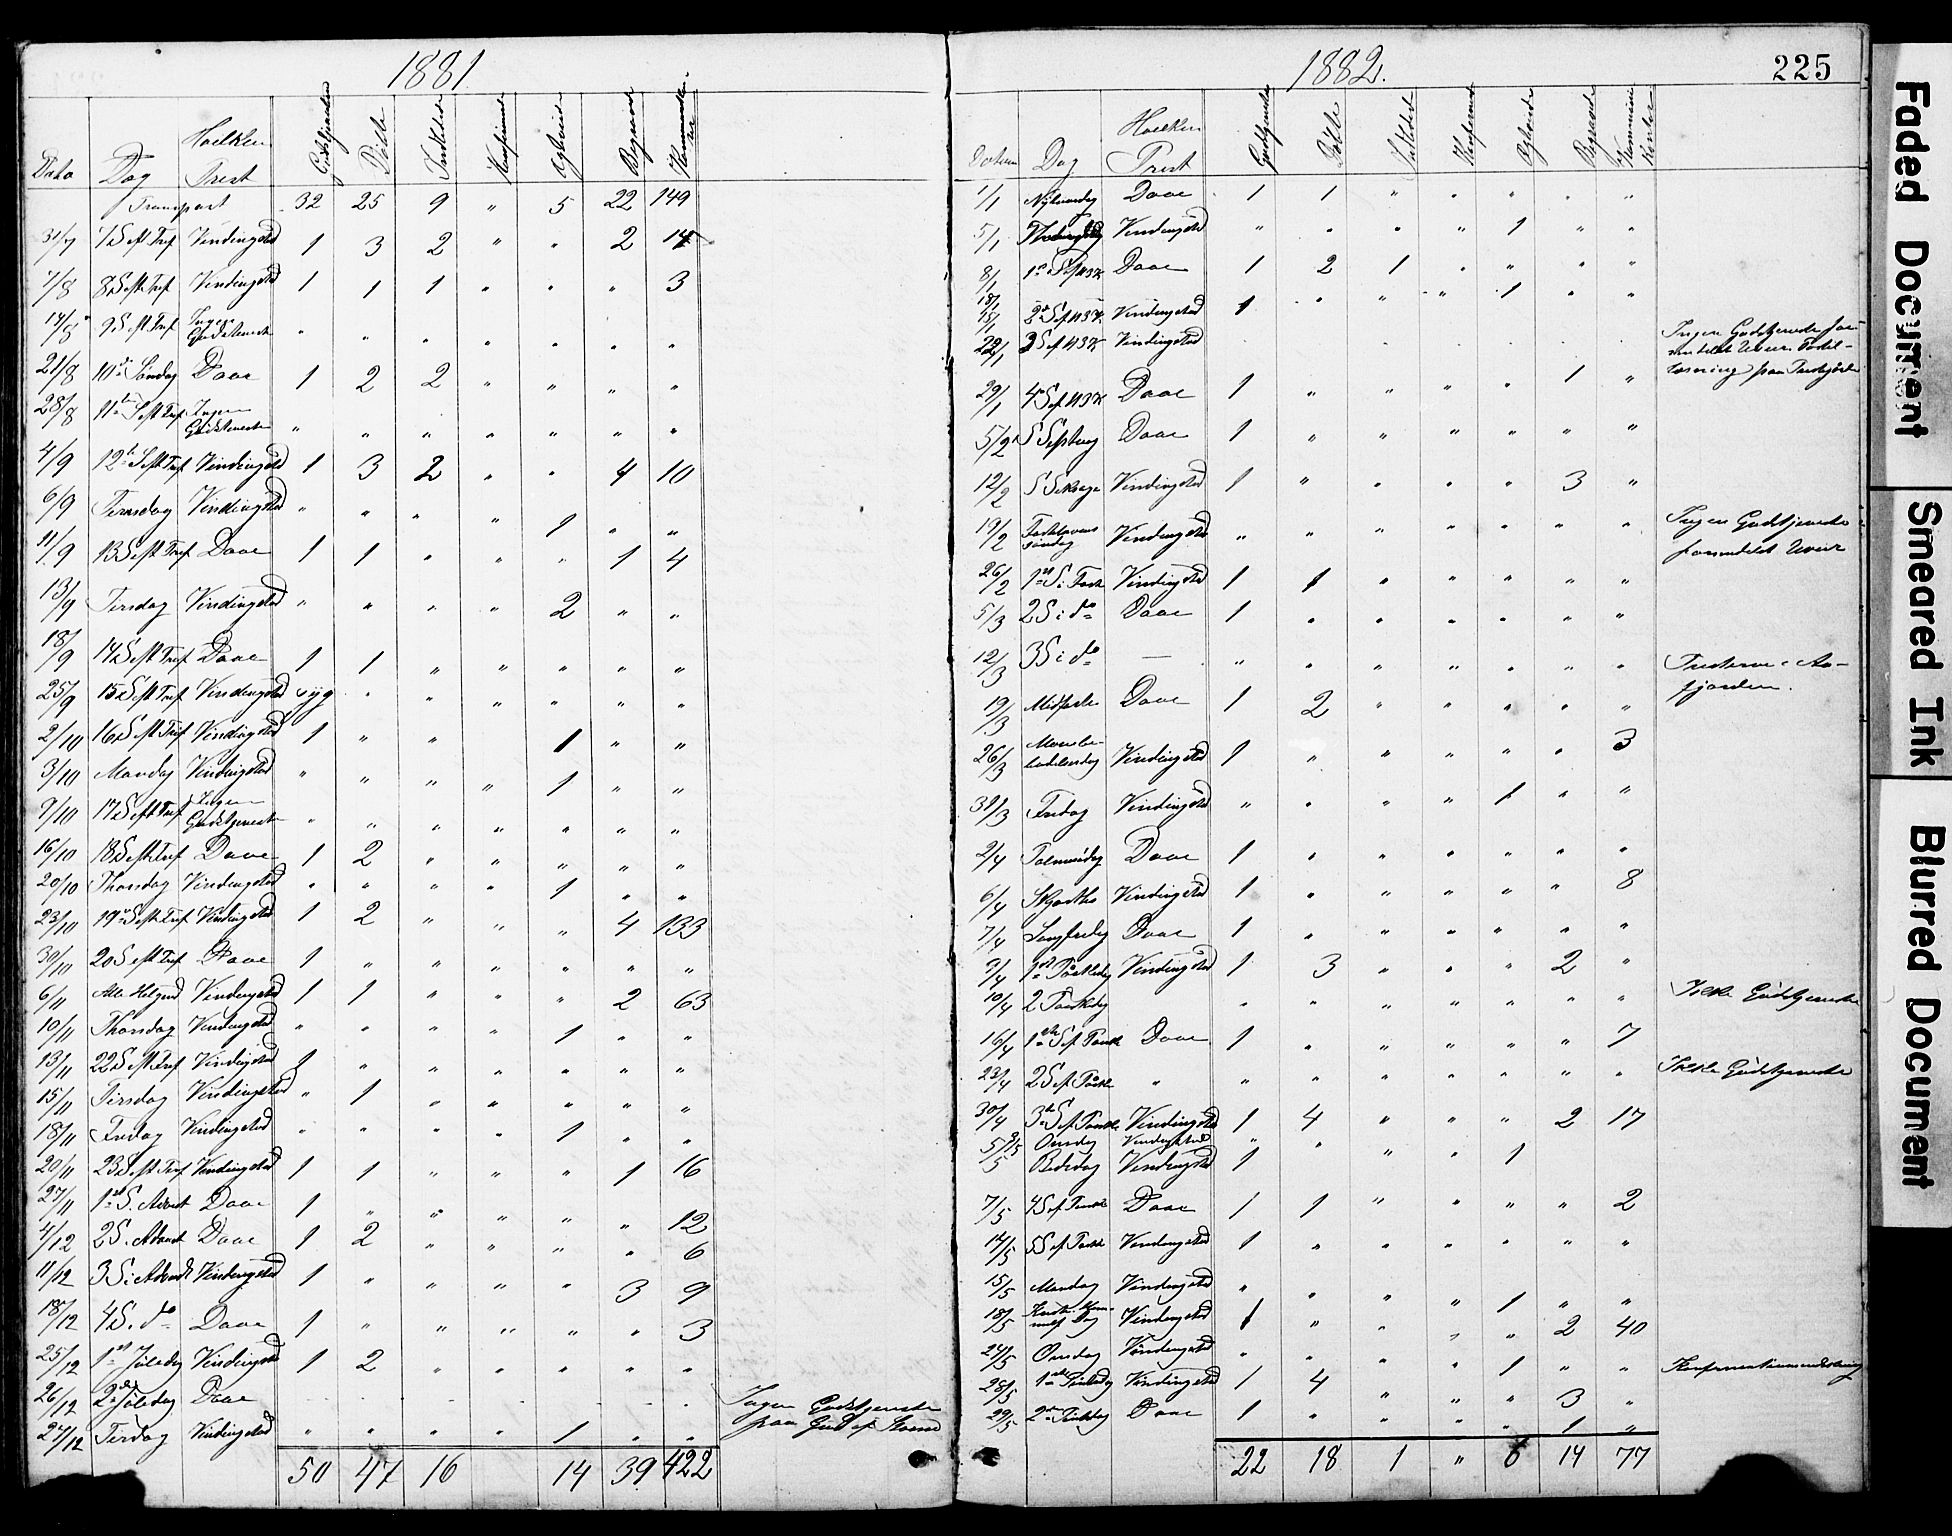 1881
Dato Dag Hvilken Prest Døbte Begravede
Transport 32 25 9 " 5 22 149
31/7 7 S eft Tref Vindingstad 1 3 2 " " 2 14
7/8 8 S eft Tref Vindingstad 1 1 1 " " " 3
14/8 9 S eft Tref Ingen Gudstjeneste " " " " " " "
21/8 10de Søndag Daae 1 2 2 " " " "
28/8 11te S eft Tref Ingen Gudstjeneste " " " " " " "
4/9 12te S eft Tref Vindingstad 1 3 2 " " 4 10
6/9 Tirsdag Vindingstad " " " " 1 " "
11/9 13 S eft Tref Daae 1 1 " " " 1 4
13/9 Tirsdag Vindingstad " " " " 2 " "
18/9 14 S eft Tref Daae 1 1 " " " " "
25/9 15 S eft Tref Vindingstad syg " " " " " "
2/10 16 S eft Tref Vindingstad 1 " " 1 " "
3/10 Mandag Vindingstad " " " " 1 " "
9/10 17 S eft Tref Ingen Gudstjeneste " " " " " " "
16/10 18 S eft Tref Daae 1 2 " " " " "
20/10 Thorsdag Vindingstad " " " " 1 " "
23/10 19de S eft Tref Vindingstad 1 2 " " " 4 133
30/10 20 S eft Tref Daae 1 " " " " " "
6/11 Alle Helgend Vindingstad 1 1 " " " 2 63
10/11 Thorsdag Vindingstad " " " " 1 " "
13/11 22 S eft Tref Vindingstad 1 " " " " " "
15/11 Tirsdag Vindingstad " 1 " " " " "
18/11 Fredag Vindingstad " " " " 1 " "
20/11 23 S eft Tref Vindingstad 1 1 " " " 1 16
27/11 1ste S. Advent Daae 1 " " " " " 12
4/12 2 S. Advent Daae 1 2 " " " " 6
11/12 3 S i Advendt Vindingstad 1 " " " " 3 9
18/12 4 S. do Daae 1 " " " " " 3
25/12 1ste Juledag Vindingstad 1 2 " " " " "
26/12 2de Juledag Daae " " " " " " " Ingen Gudstjeneste
27/12 Tirsdag Vindingstad " " " " 1 " " paa Grund af Storm
50 47 16 14 39 422
1882.
225
Datum Dag Hvilken Prest Døbte Begravede
1/1 Nytaarsdag Daae 1 1 " " " " "
5/1 Thorsdag Vindingstad " " " " 1 " "
8/1 1ste S ef H3K Daae 1 2 1 " " " "
15/1 2de S ef H3K Vindingstad 1 " " " 1 " "
22/1 3 S ef H3K Vindingstad Ingen Gudstjeneste for-
29/1 4 S ef H3K Daae 1 " " " " 1 "
5/2 Daae 1 " " " " " "
12/2 Vindingstad 1 " " " " 3 "
19/2 Fastelavens søndag Vindingstad " " " " " " " Ingen Gudstjeneste formedelst Uveir
26/2 1ste S i Faste Vindingstad 1 1 " " " " "
5/3 2 S i do Daae 1 " " " " " "
12/3 3 S i do — " " " " " " " Presterne i Aa-
fjorden.
19/3 Midfaste Daae 1 2 " " " " "
26/3 Mariæ be-
budelsesdag Vindingstad 1 " " " " " 3
31/3 Fredag Vindingstad " " " " 1 " "
2/4 Palmesøndag Daae 1 " " " " " "
6/4 Vindingstad 1 " " " " " 8
7/4 Langfredag Daae 1 " " " " " "
9/4 1ste Paaskedag Vindingstad 1 3 " " " 2 "
10/4 2 Paaskedag " " " " " " " Ikke Gudstjeneste
16/4 1ste S ef Paaske Daae 1 " " " " " 7
23/4 2 S ef Paaske " " " " " " " " Ikke Gudstjeneste
30/4 3de S ef Paaske Vindingstad 1 4 " " " 2 17
3/5 Onsdag Vindingstad " "
5/5 Bededag Vindingstad 1 " " 1
7/5 4 S ef Paaske Daae 1 1 " " " " 2
14/5 5 S ef Paaske Vindingstad 1 " " " " " "
15/5 Mandag Vindingstad " " " " 1 " "
18/5 Kristi Him-
melf Dag Vindingstad 1 " " " " 2 40
24/5 Onsdag Vindingstad " " " " 1 " " Konfirmationsundervisning
28/5 1ste Pintsedag Vindingstad 1 4 " " " 3 "
29/5 2den Pintsedag Daae 1 " " " " 1 "
22 18 1 " 6 14 77
Faded Document
Smeared Ink
Blurred Document